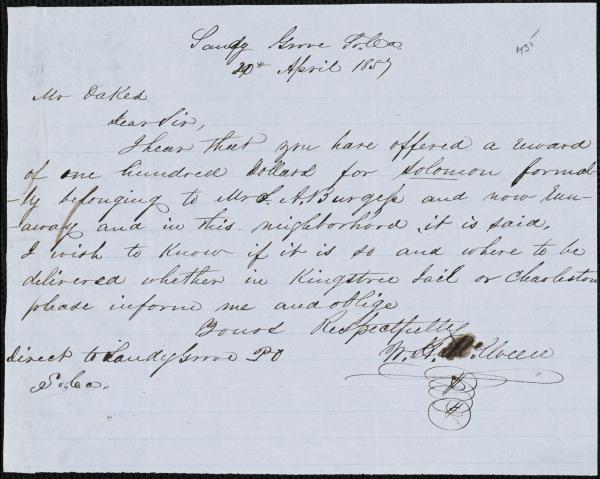 Sandy Grove S. Ca
20th April 1857
Mr Oakes
Dear Sir,
I hear that you have offered a reward
of one hundred Dollars for Solomon formal-
-ly belonging to Mrs. S. A. Burgess and now run-
-away and in this neighborhood, it is said,
I wish to know if it is so and where to be
delivered whether in Kingstree Jail or Charleston
please inform me and oblige
Yours Respectfully
Direct to Sandy Grove PO
S. Ca.